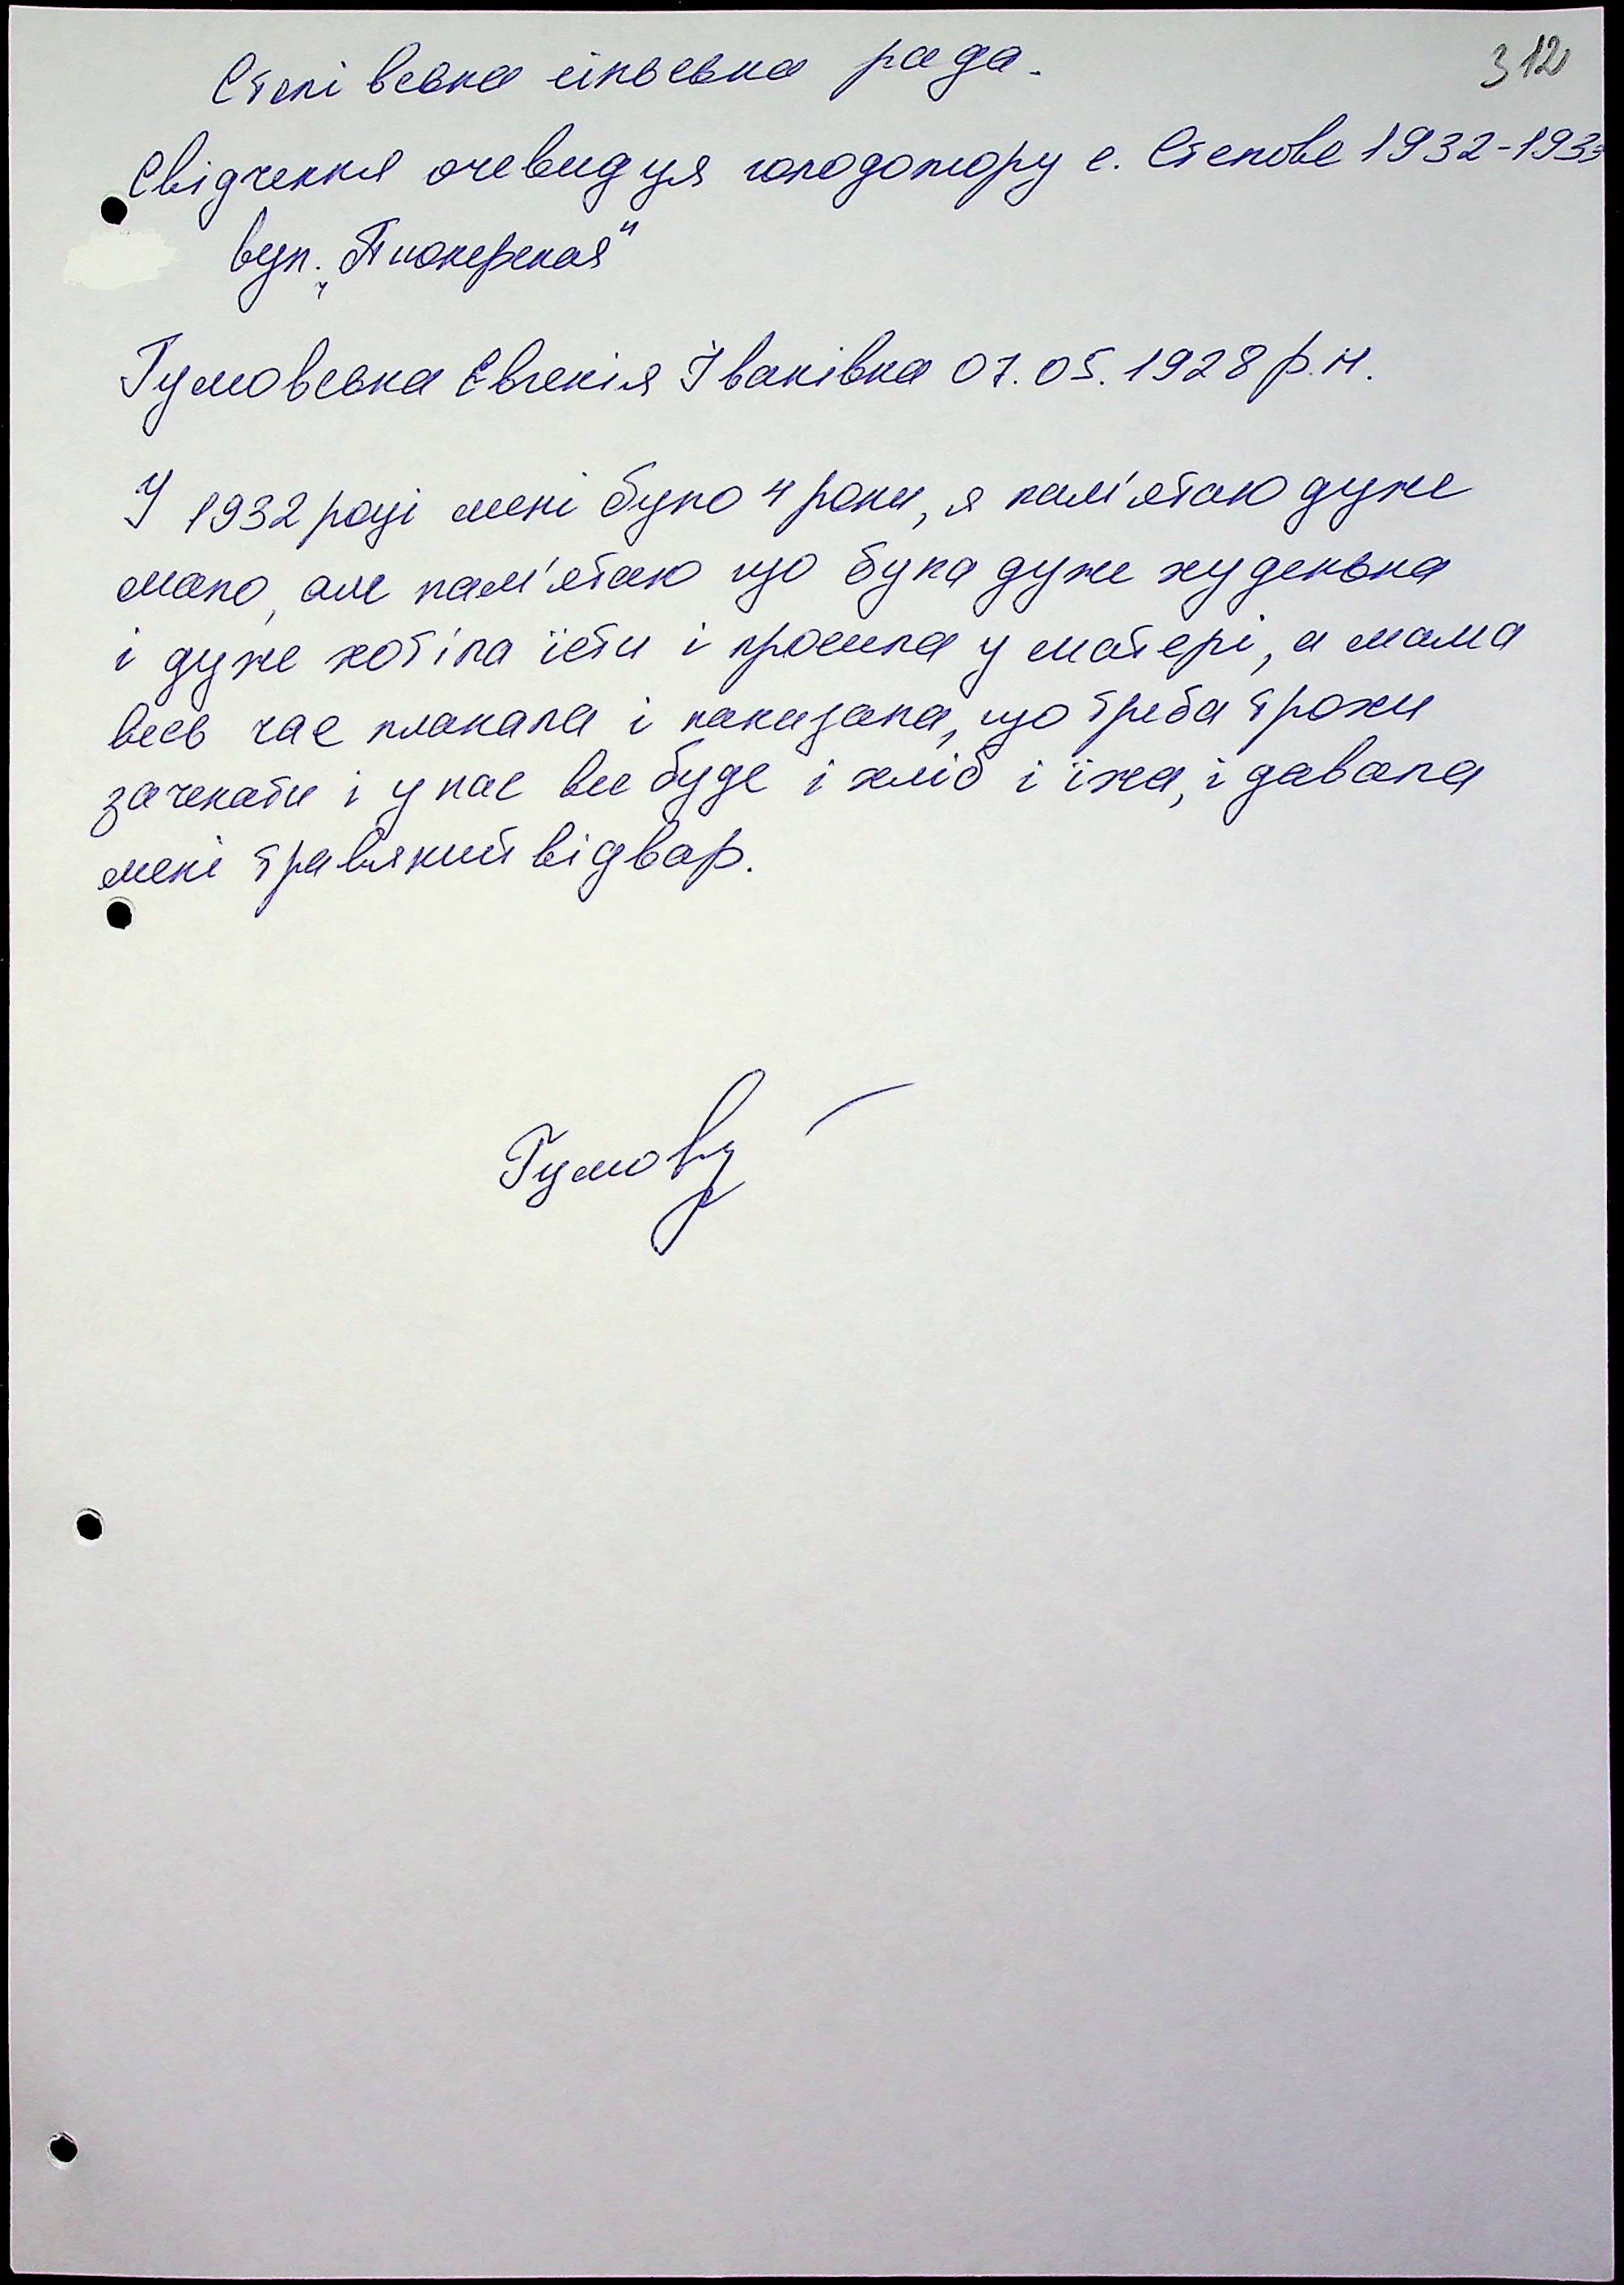 312
Степівська сільська рада.
Свідчення очевидця голодомору с. Степове 1932-1933
вул. "Пионерская"
Гумовська Євгенія Іванівна 07.05.1928 р.н.
У 1932 році мені було 4 роки, я пам'ятаю дуже
мало, але пам'ятаю що була дуже худенька
і дуже хотіла їсти і просила у матері, а мама
весь час плакала і показала, що треба трохи
зачекати і у нас все буде і хліб і їжа, і давала
мені травяний відвар.
Гумов